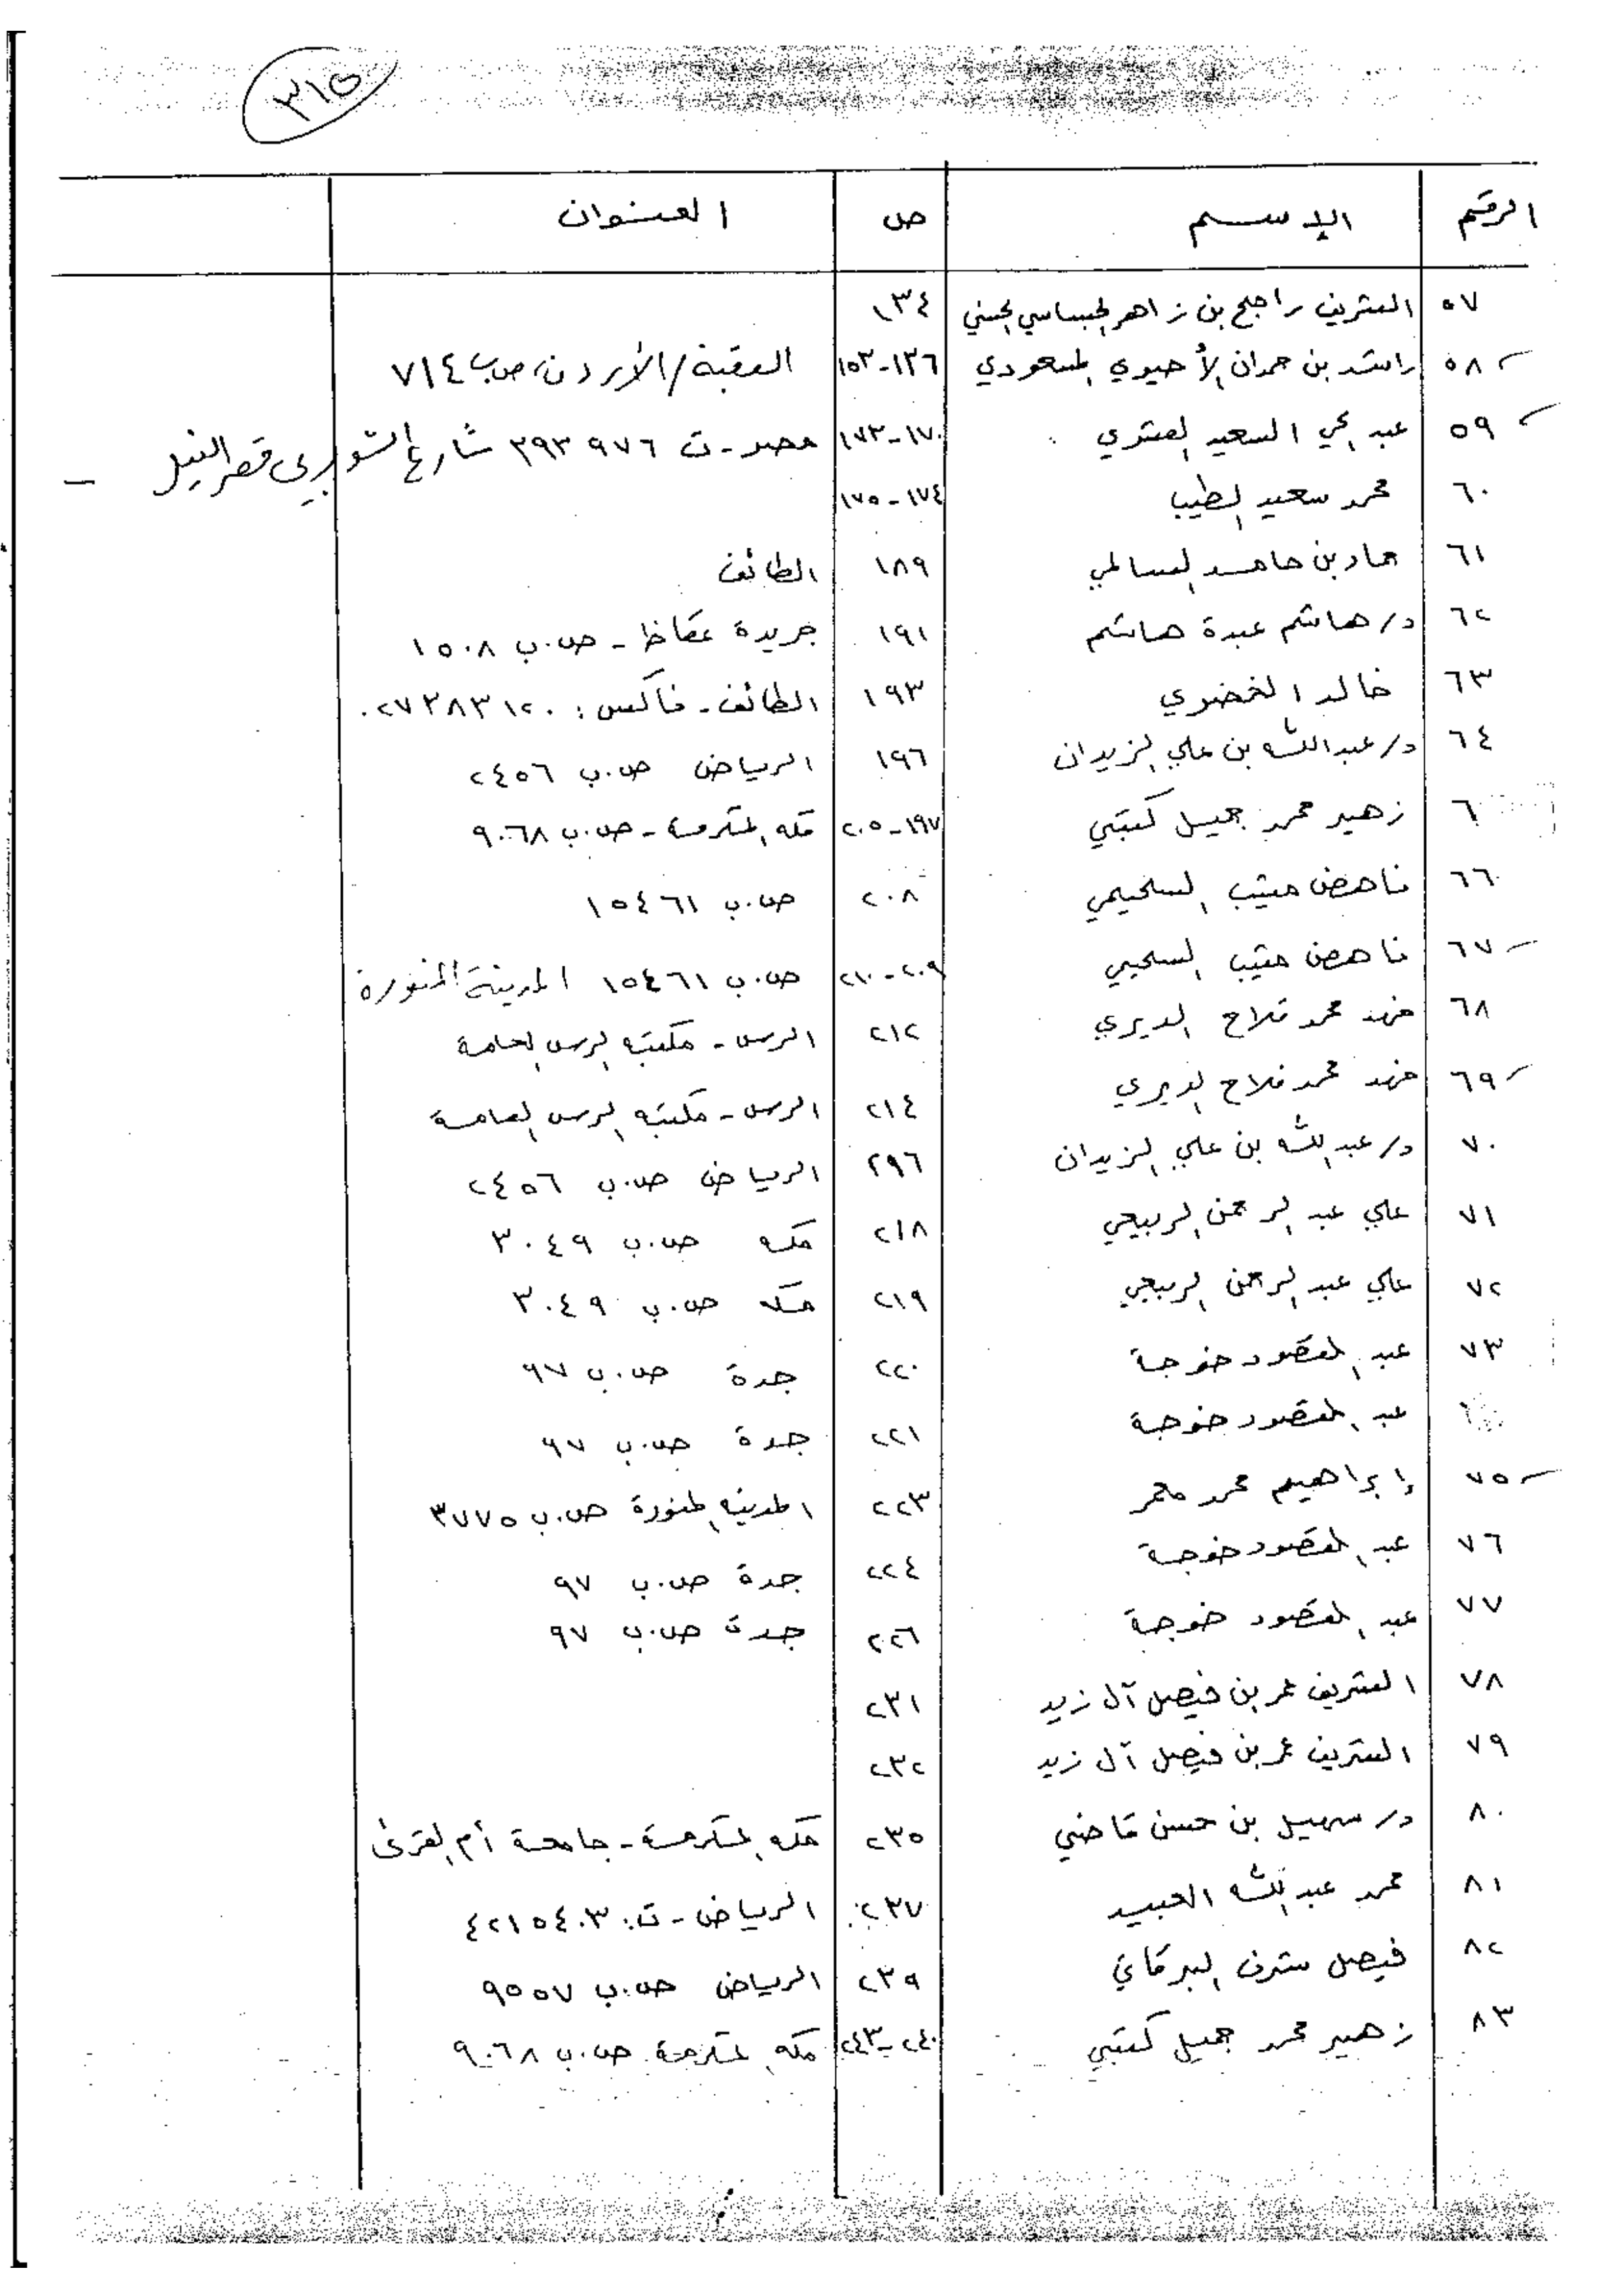 ٣١٥
الرقم الاسم ص العنوان
٥٧ الشريف راجح بن زاهر الحسني ١٣٤
٥٨ راشد بن حمدان الأحيوي المسعودي ١٣٦-١٥٣ العقبة/الأردن، ص.ب ٧١٤
٥٩ عبد الحي السعيد العشري ١٧٠-١٧٣ مصر - ت ٣٩٣٩٧٦ شارع الشواربي قصر النيل -
٦٠ محمد سعيد الطيب ١٧٤-١٧٥
٦١ حماد بن حامد السالمي ١٨٩ الطائف
٦٢ د/ هاشم عبدة هاشم ١٩١ جريدة عكاظ - ص.ب ١٥٠٨
٦٣ خالد الخضري ١٩٣ الطائف - فاكس: ٠٢٧٣٨٣١٢٠
٦٤ د/ عبد الله بن علي الزيدان ١٩٦ الرياض ص.ب ٢٤٥٦
٦ زهير محمد جميل كتبي ١٩٧-٢٠٥ مكه المكرمة - ص.ب ٩٠٦٨
٦٦ ناهض منيب السحيمي ٢٠٨ ص.ب ١٥٤٦١
٦٧ ناهض منيب السحيمي ٢٠٩-٢١٠ ص.ب ١٥٤٦١ المدينة المنورة
٦٨ فهد محمد فلاح الديري ٢١٢ الرس - مكتبه الرس العامة
٦٩ فهد محمد فلاح الديري ٢١٤ الرس - مكتبه الرس العامة
٧٠ د/ عبد الله بن علي الزيدان ٢٩٦ الرياض ص.ب ٢٤٥٦
٧١ علي عبد الرحمن الربيعي ٢١٨ مكه ص.ب ٣٠٤٩
٧٢ علي عبد الرحمن الربيعي ٢١٩ مكه ص.ب ٣٠٤٩
٧٣ عبد المقصود خوجة ٢٢٠ جدة ص.ب ٩٧
عبد المقصود خوجة ٢٢١ جدة ص.ب ٩٧
٧٥ إبراهيم محمد معمر ٢٢٣ المدينه المنورة ص.ب ٣٧٧٥
٧٦ عبد المقصود خوجة ٢٢٤ جدة ص.ب ٩٧
٧٧ عبد المقصود خوجة ٢٢٦ جدة ص.ب ٩٧
٧٨ الشريف عمر بن فيصل آل زيد ٢٣١
٧٩ الشريف عمر بن فيصل آل زيد ٢٣٢
٨٠ د/ سهيل بن حسن قاضي ٢٣٥ مكه المكرمة - جامعة أم القرى
٨١ محمد عبد الله الحبيد ٢٣٧ الرياض - ت: ٤٢١٥٤٠٣
٨٢ فيصل شرف البركاتي ٢٣٩ الرياض ص.ب ٩٥٥٧
٨٣ زهير محمد جميل كتبي ٢٤٠-٢٤٣ مكه المكرمة ص.ب ٩٠٦٨